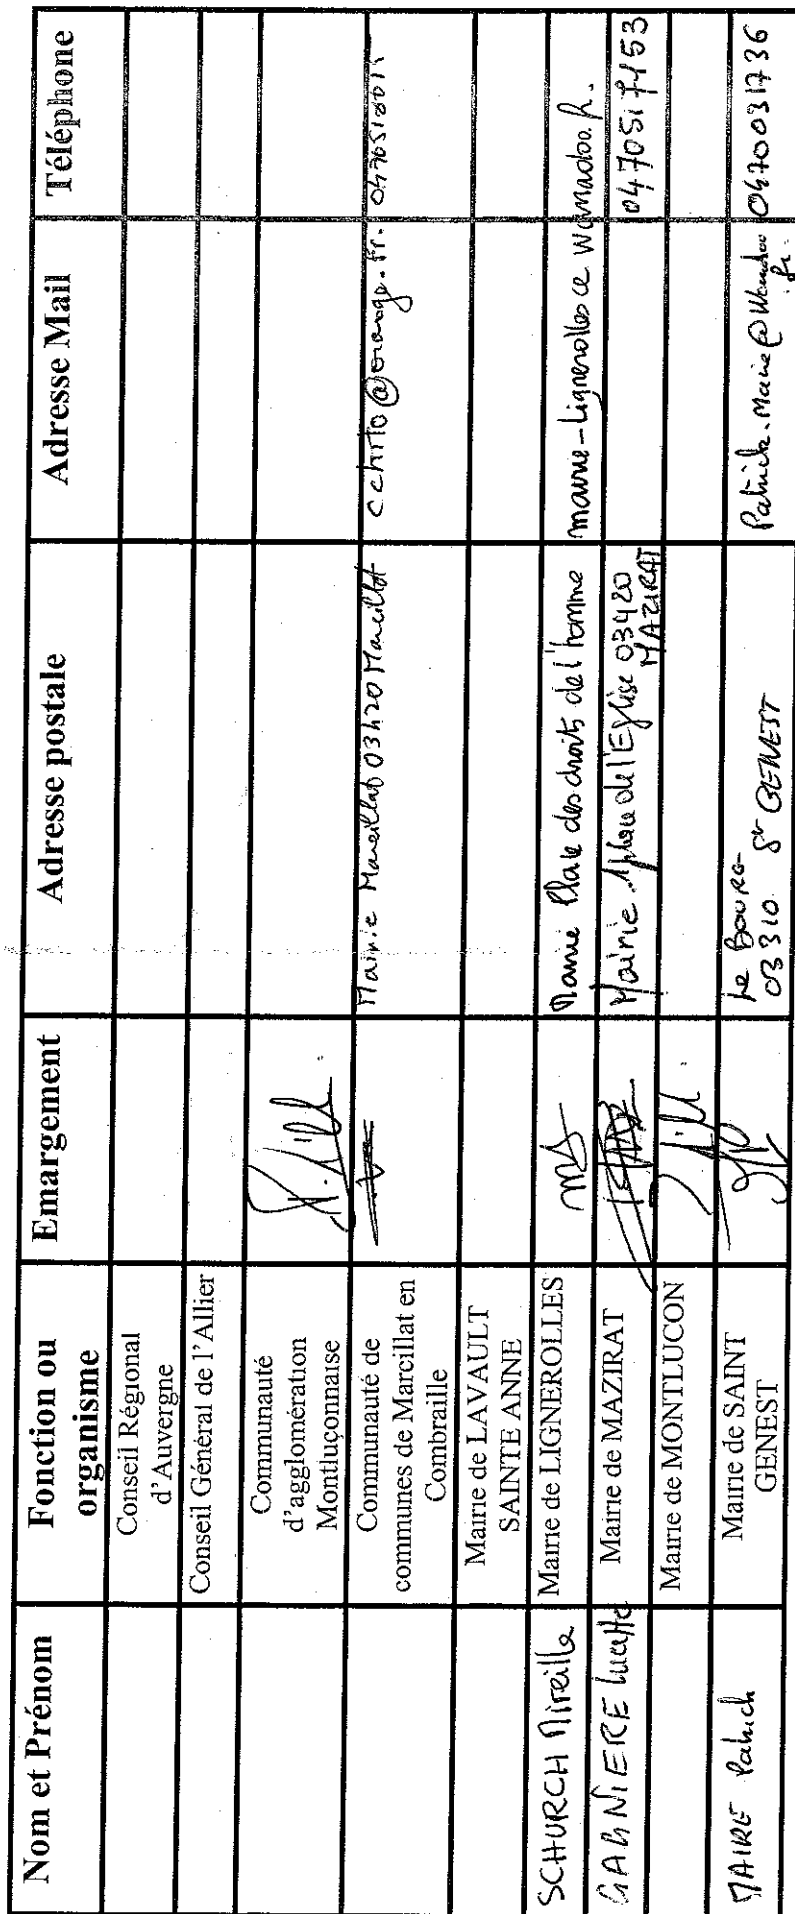 Nom et Prénom
Fonction ou
organisme
Emargement
Adresse postale
Adresse Mail
Téléphone
Conseil Régional
d'Auvergne
Conseil Général de l'Allier
Communauté
d'agglomération
Montluçonnaise
Communauté de
communes de Marcillat en
Combraille
Mairie Marcillat 03420 Marcillat
@orange.fr.
Mairie de LAVAULT
SAINTE ANNE
SCHURCH Mireille
Mairie de LIGNEROLLES
MS
Mairie Place des droits de l'homme
mairie-lignerolles@wanadoo.fr.
GAGNIERE Lucette
Mairie de MAZIRAT
Mairie 1 place de l'Eglise 03420
MAZIRAT
0470517153
Mairie de MONTLUCON
MAIRE Patrick
Mairie de SAINT
GENEST
Le Bourg
03310 St GENEST
Patrick.Maire@Wanadoo
.fr.
0470031736